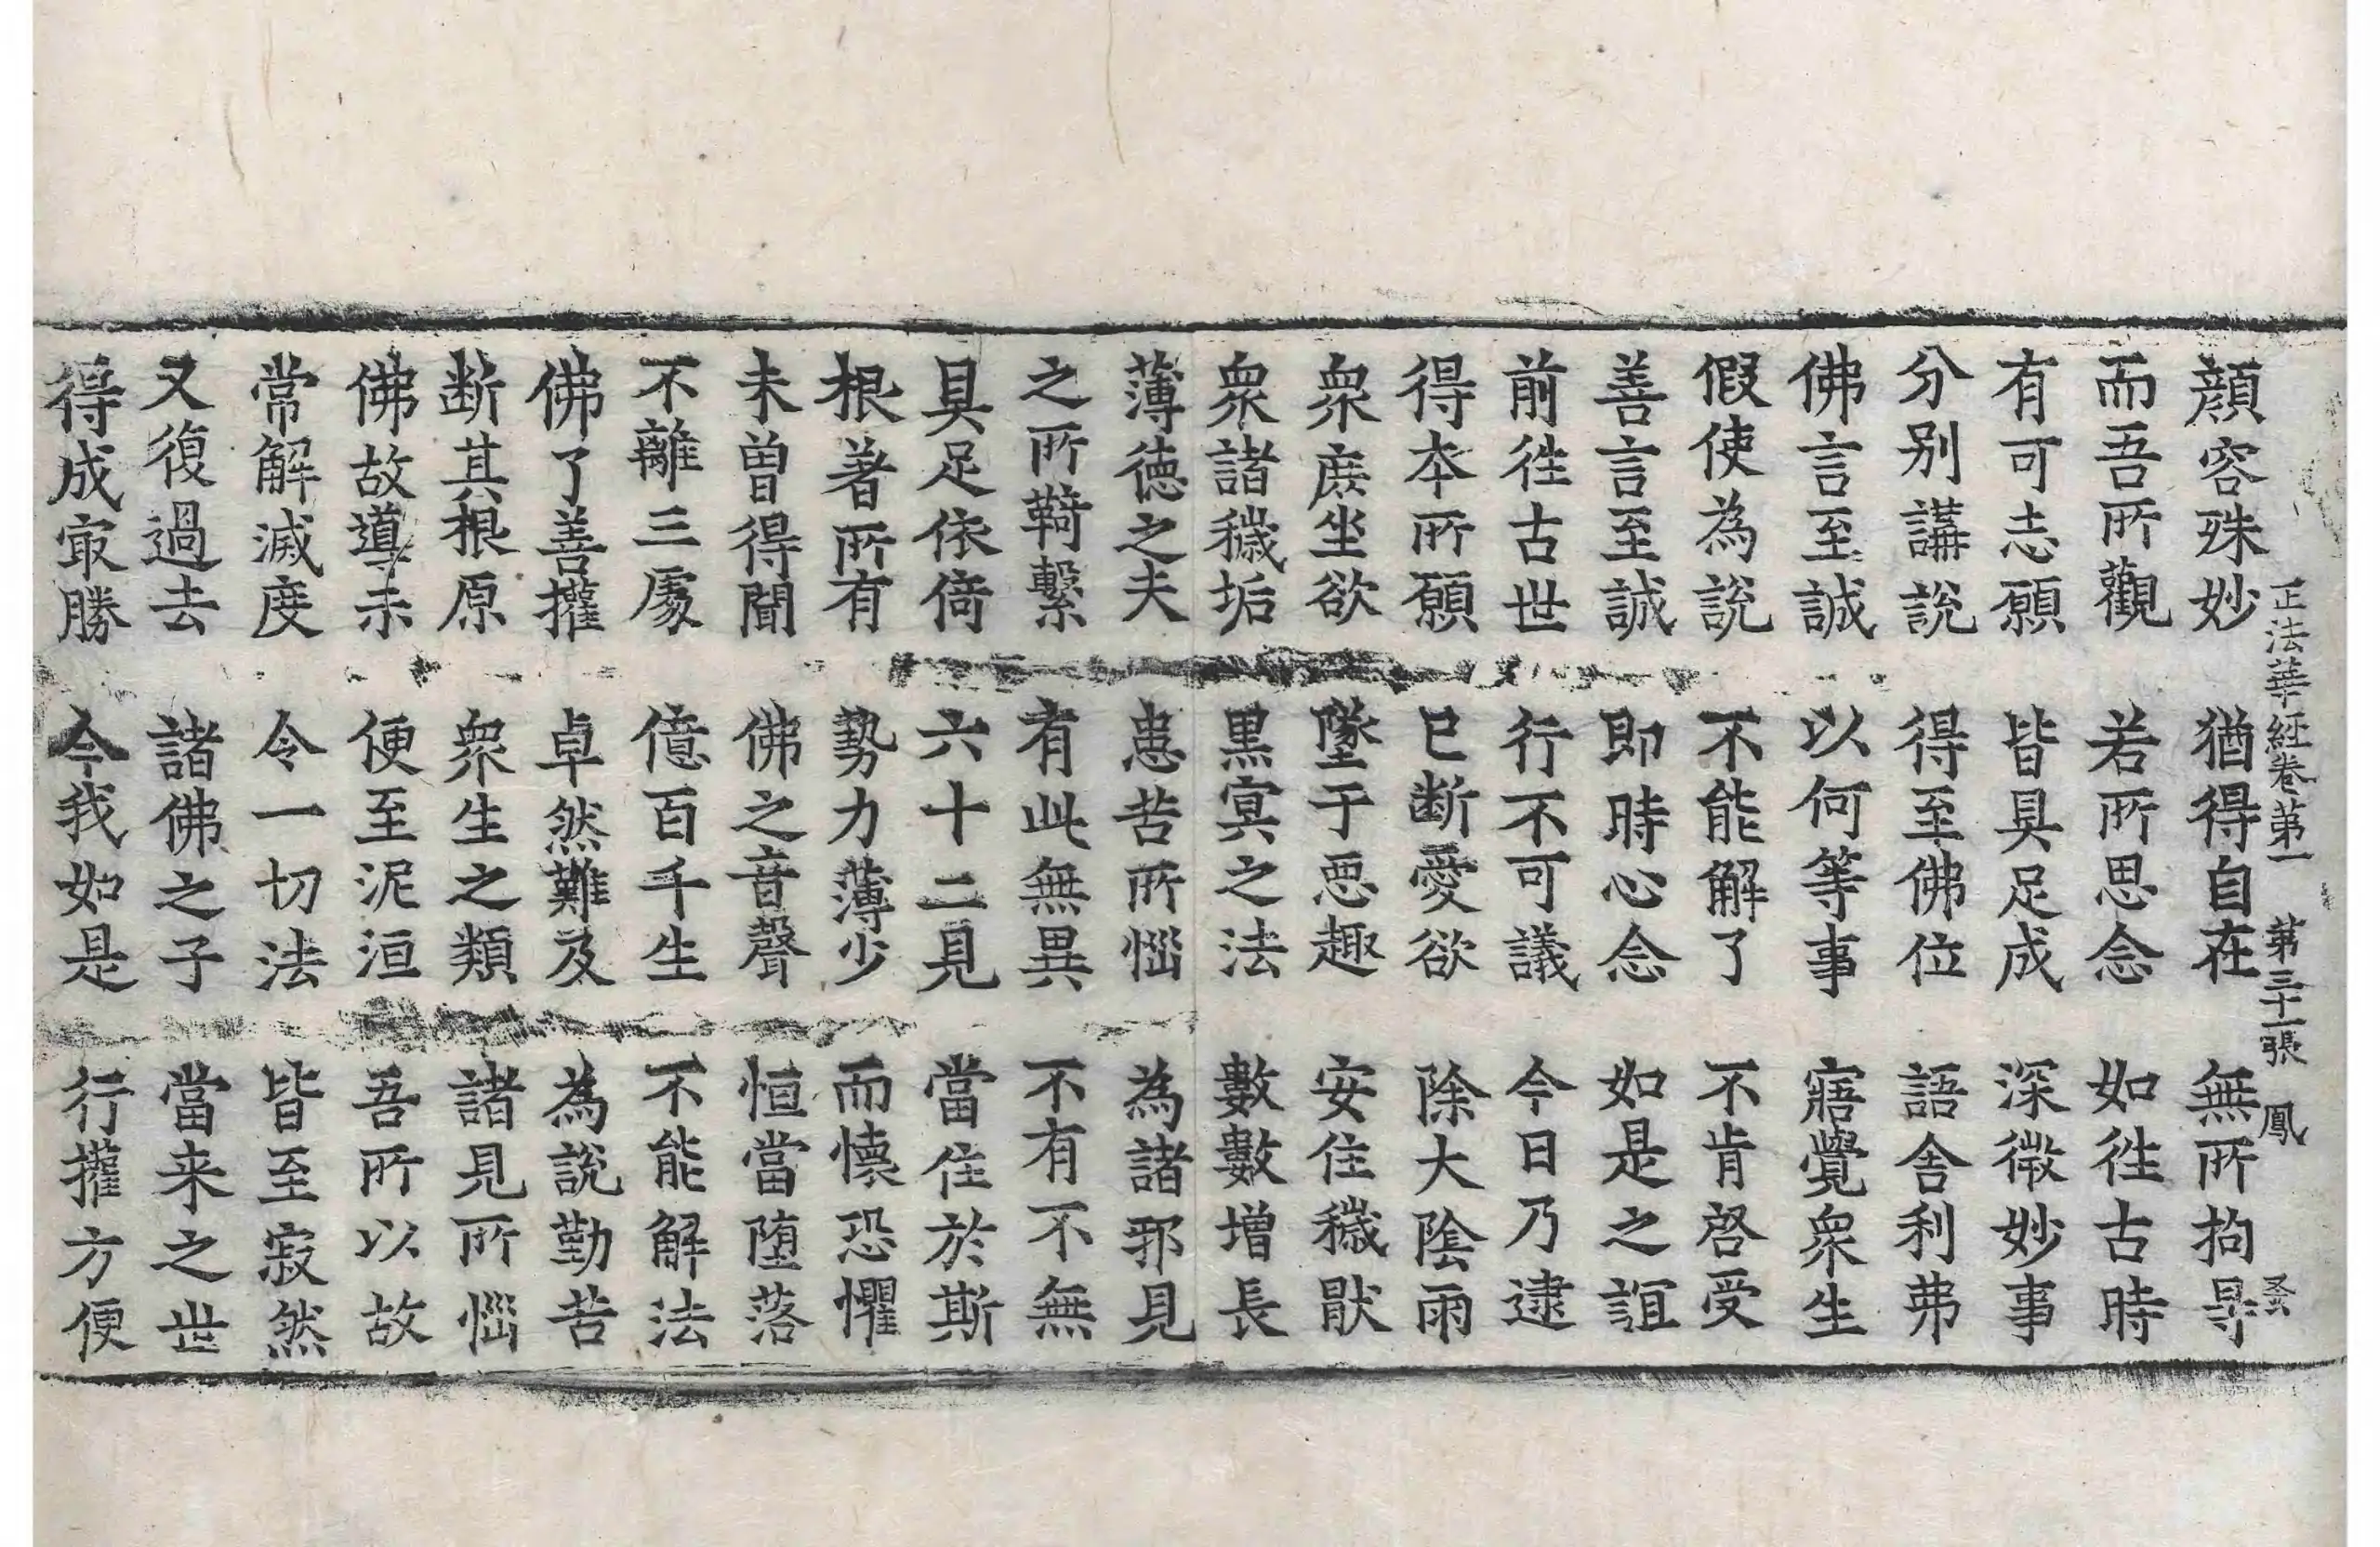 正法華經卷第一 第三十一張 鳳
顔容殊妙 猶得自在 無所拘㝵
而吾所觀 若所思念 如往古時
有可志願 皆具足成 深微妙事
分別講說 得至佛位 語舍利弗
佛言至誠 以何等事 寤覺衆生
假使為說 不能解了 不肯啓受
善言至誠 即時心念 如是之誼
前往古世 行不可議 今日乃逮
得本所願 已断愛欲 除大陰雨
衆庶坐欲 墜于惡趣 安住穢猒
衆諸穢垢 黒冥之法 數數増長
薄德之夫 患苦所惱 為諸邪見
之所羇繫 有此無異 不有不無
具足依倚 六十二見 當住於斯
根著所有 勢力薄少 而懷恐懼
未曾得聞 佛之音聲 恒當堕落
不離三處 億百千生 不能解法
佛了善權 卓然難及 為說勤苦
断其根原 衆生之類 諸見所惱
佛故導示 便至泥洹 吾所以故
常解滅度 令一切法 皆至寂然
又復過去 諸佛之子 當来之世
得成㝡勝 今我如是 行權方便